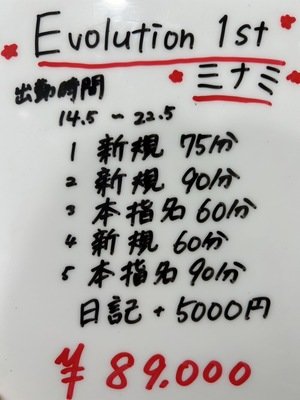 Evolution 1st
ミナミ
出勤時間
14.5 ~ 22.5
1 新規 75分
2 新規 90分
3 本指名 60分
4 新規 60分
5 本指名 90分
日記 + 5000円
¥ 89.000